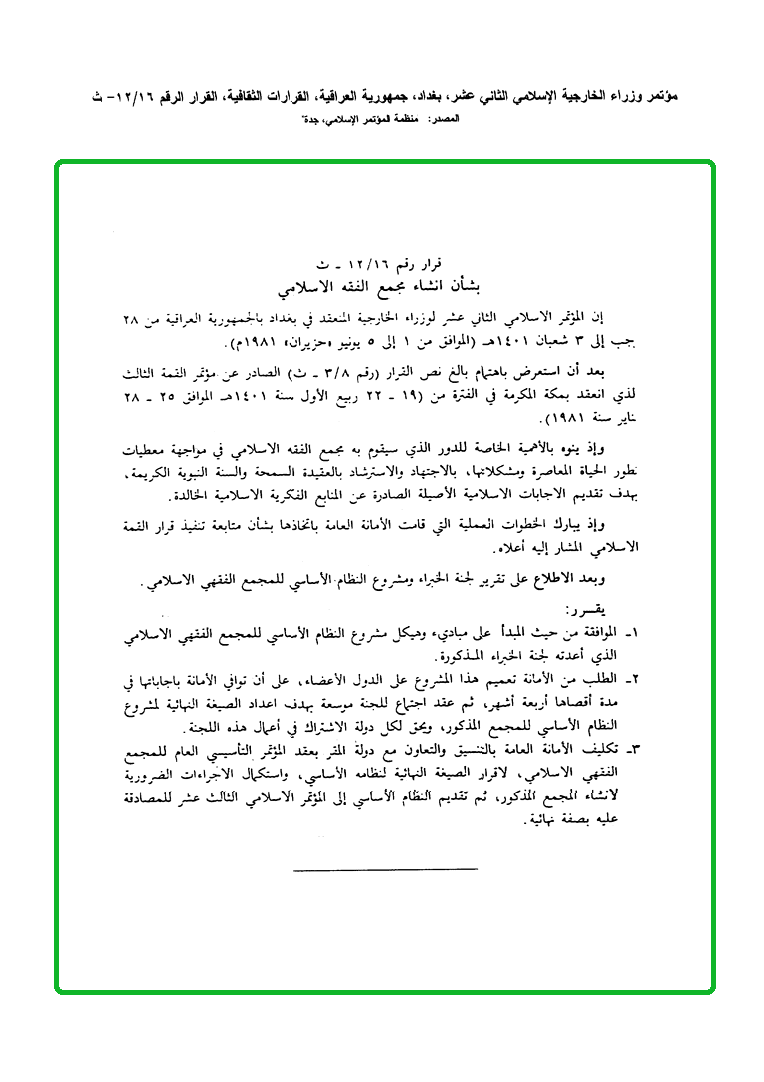 مؤتمر وزراء الخارجية الإسلامي الثاني عشر، بغداد، جمهورية العراقية، القرارات الثقافية، القرار الرقم ١٢/١٦- ث
المصدر: منظمة المؤتمر الإسلامي، جدة"
قرار رقم ١٢/١٦ ـ ث
بشأن انشاء مجمع الفقه الاسلامي
إن المؤتمر الاسلامي الثاني عشر لوزراء الخارجية المنعقد في بغداد بالجمهورية العراقية من ٢٨
جب إلى ٣ شعبان ١٤٠١هـ (الموافق من ١ إلى ٥ يونيو «حزيران» ١٩٨١م).
بعد أن استعرض باهتمام بالغ نص القرار (رقم ٣/٨ ـ ث) الصادر عن مؤتمر القمة الثالث
لذي انعقد بمكة المكرمة في الفترة من (١٩ ـ ٢٢ ربيع الأول سنة ١٤٠١هـ الموافق ٢٥ ـ ٢٨
يناير سنة ١٩٨١).
وإذ ينوه بالأهمية الخاصة للدور الذي سيقوم به مجمع الفقه الاسلامي في مواجهة معطيات
تطور الحياة المعاصرة ومشكلاتها، بالاجتهاد والاسترشاد بالعقيدة السمحة والسنة النبوية الكريمة،
بهدف تقديم الاجابات الاسلامية الأصيلة الصادرة عن المنابع الفكرية الاسلامية الخالدة.
وإذ يبارك الخطوات العملية التي قامت الأمانة العامة باتخاذها بشأن متابعة تنفيذ قرار القمة
الاسلامي المشار إليه أعلاه.
وبعد الاطلاع على تقرير لجنة الخبراء ومشروع النظام الأساسي للمجمع الفقهي الاسلامي.
يقـرر:
١ـ الموافقة من حيث المبدأ على مباديء وهيكل مشروع النظام الأساسي للمجمع الفقهي الاسلامي
الذي أعدته لجنة الخبراء المذكورة.
٢ـ الطلب من الأمانة تعميم هذا المشروع على الدول الأعضاء، على أن توافي الأمانة باجاباتها في
مدة أقصاها أربعة أشهر، ثم عقد اجتماع للجنة موسعة بهدف اعداد الصيغة النهائية لمشروع
النظام الأساسي للمجمع المذكور، ويحق لكل دولة الاشتراك في أعمال هذه اللجنة.
٣ـ تكليف الأمانة العامة بالتنسيق والتعاون مع دولة المقر بعقد المؤتمر التأسيسي العام للمجمع
الفقهي الاسلامي، لاقرار الصيغة النهائية لنظامه الأساسي، واستكمال الاجراءات الضرورية
لانشاء المجمع المذكور، ثم تقديم النظام الأساسي إلى المؤتمر الاسلامي الثالث عشر للمصادقة
عليه بصفة نهائية.